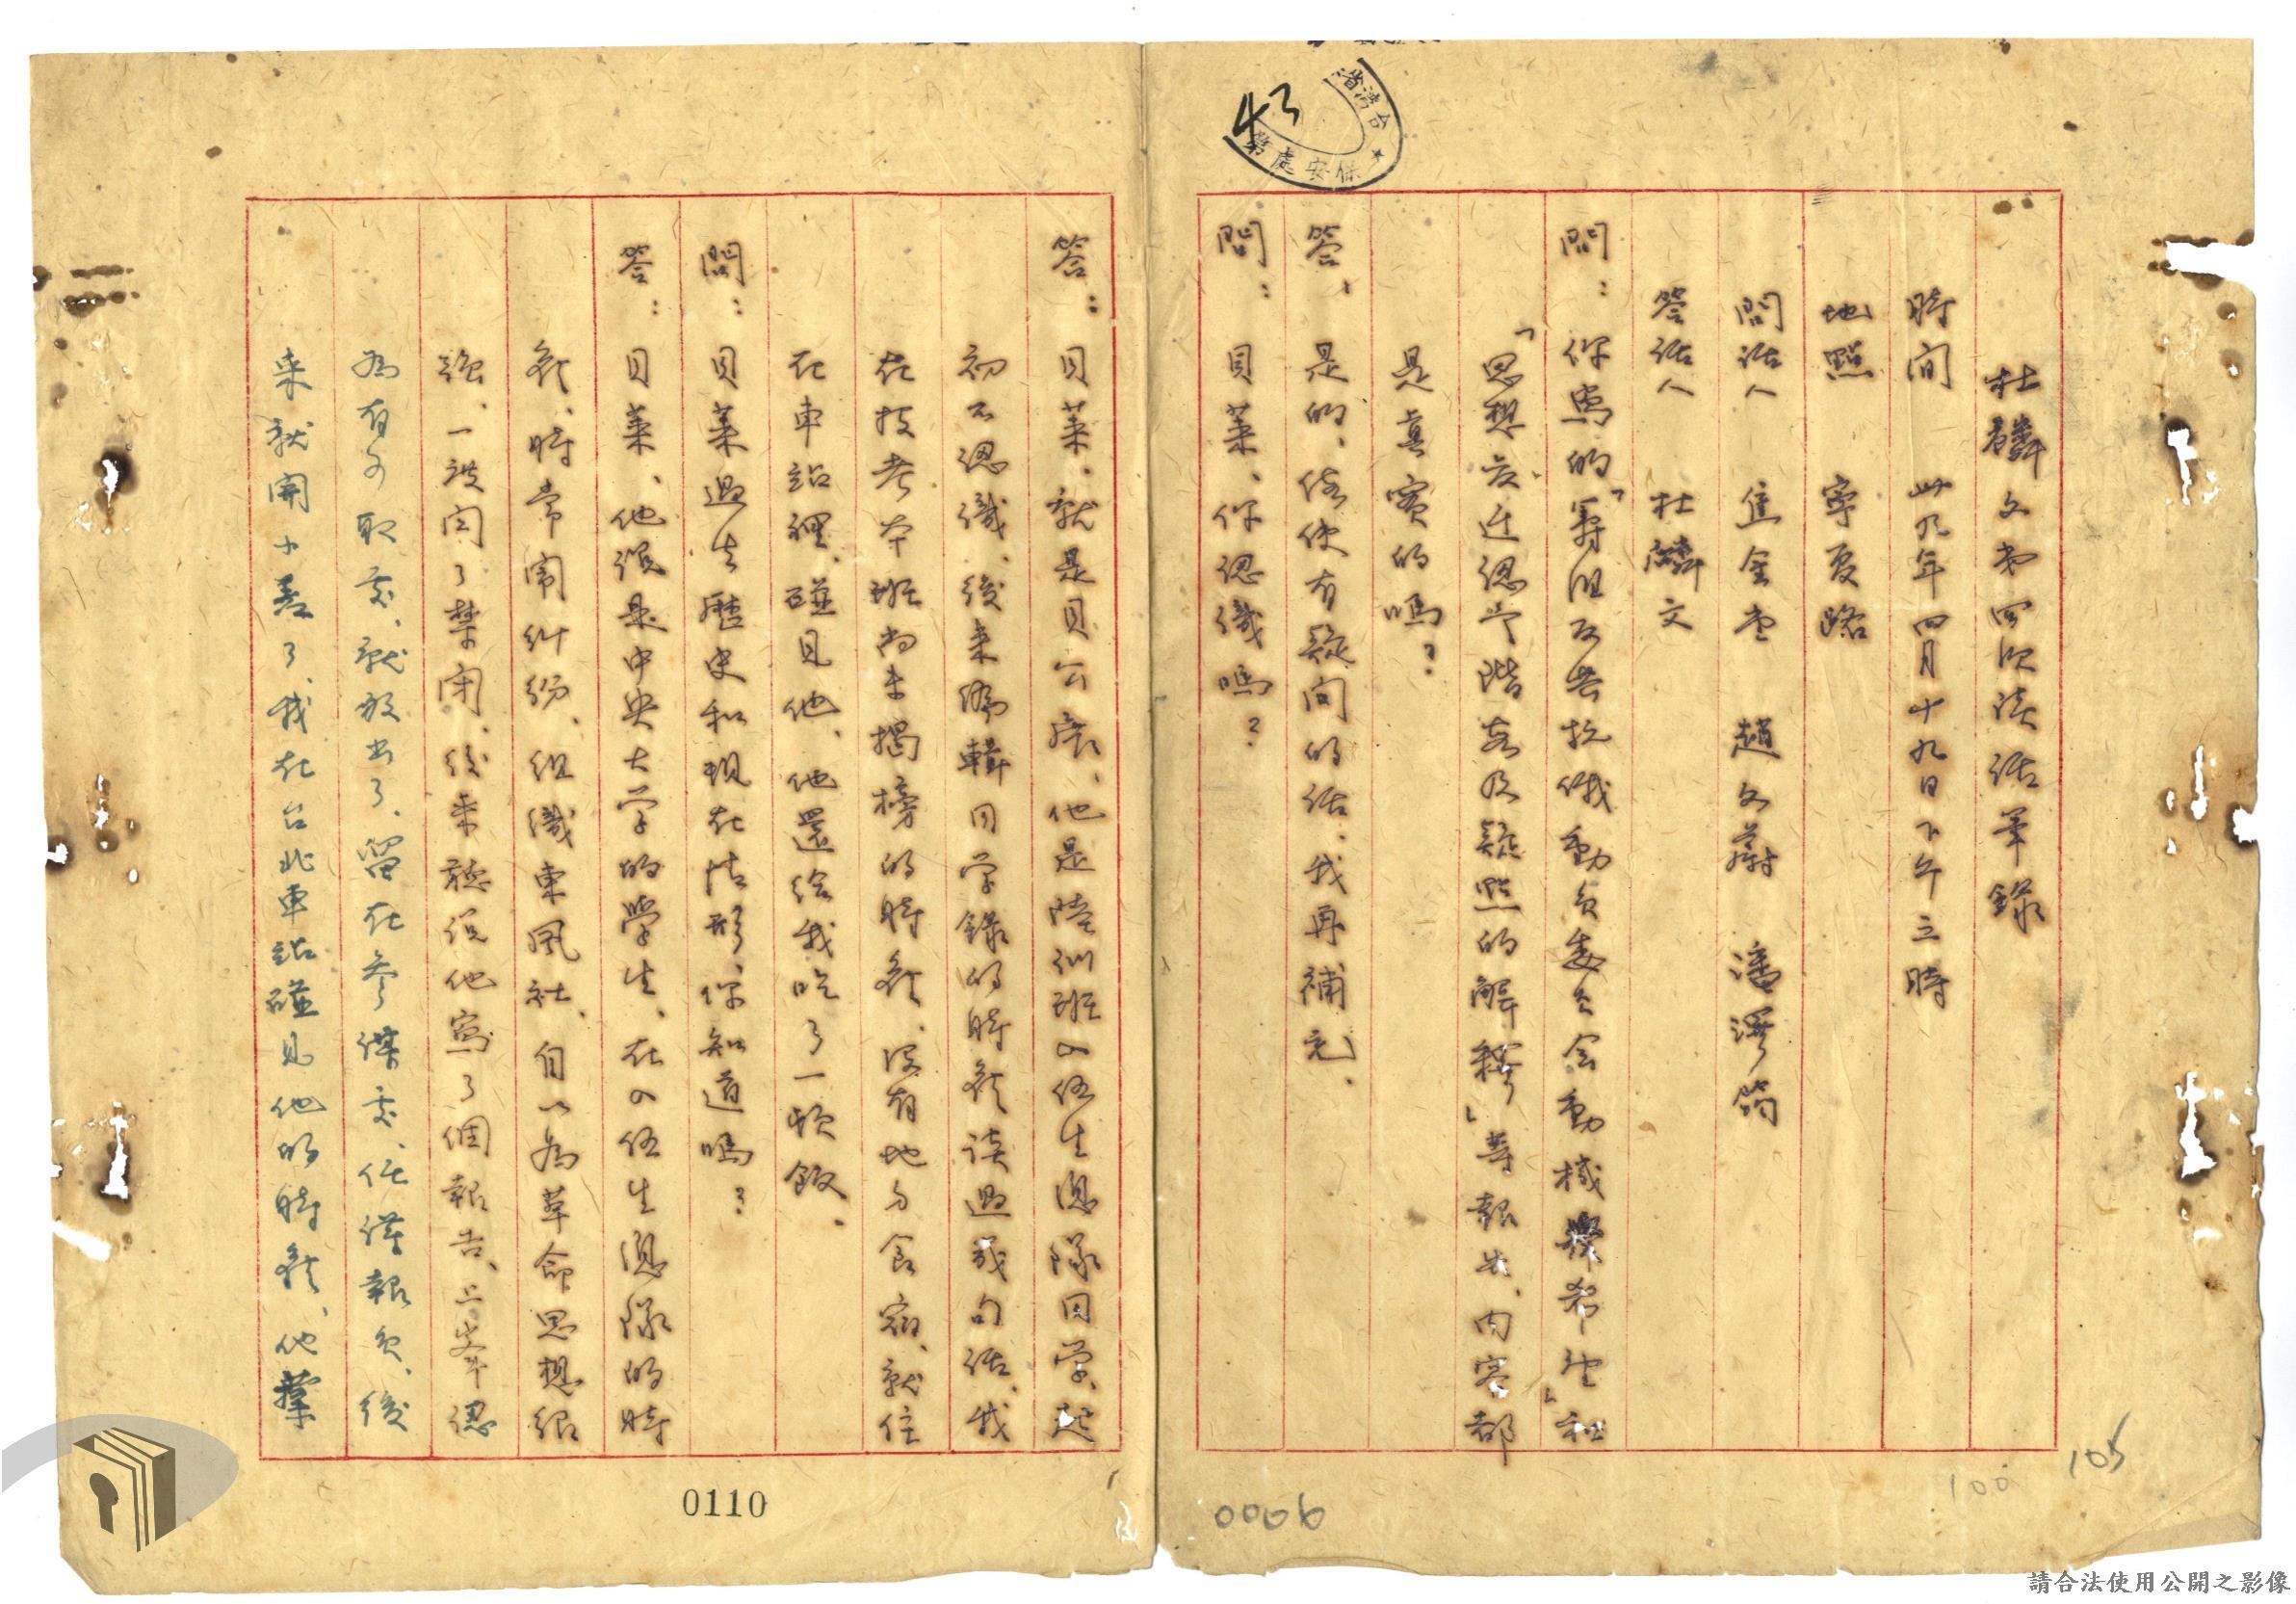 杜麟文第四次談話筆錄
時間 卅九年四月十九日下午三時
地點 寧夏路
問話人 焦金堂 趙公嘏 潘澤筠
答話人 杜麟文
問：你寫的「籌組反共抗俄動員委員會動機與希望」和
「思想交迁認字階段及疑點的解釋」等報告、內容都
是真實的嗎？
答、是的、倘使有疑問的話、我再補充、
問：貝萊、你認識嗎？
答：貝萊、就是貝公展、他是陸訓班入伍生總隊同學、起
初不認識、後來編輯同學錄的時候談過幾句話、我
在技考本班尚未揭榜的時候、沒有地方食宿、就住
在車站裡、碰見他、他還給我吃了一頓飯、
問：貝萊過去歷史和現在情形、你知道嗎？
答：貝萊、他說是中央大学的學生、在入伍生總隊的時
候、時常鬧糾紛、組織東風社、自以為革命思想很
強、一設間了禁閉、後來聽說他寫了個報告、上峯認
為有可取處、就放出了、留在參謀處、任諜報員、後
來就開小差了、我在台北車站碰見他的時候、他業
台灣省
保安處
第
43
0110
0006
100
105
請合法使用公開之影像